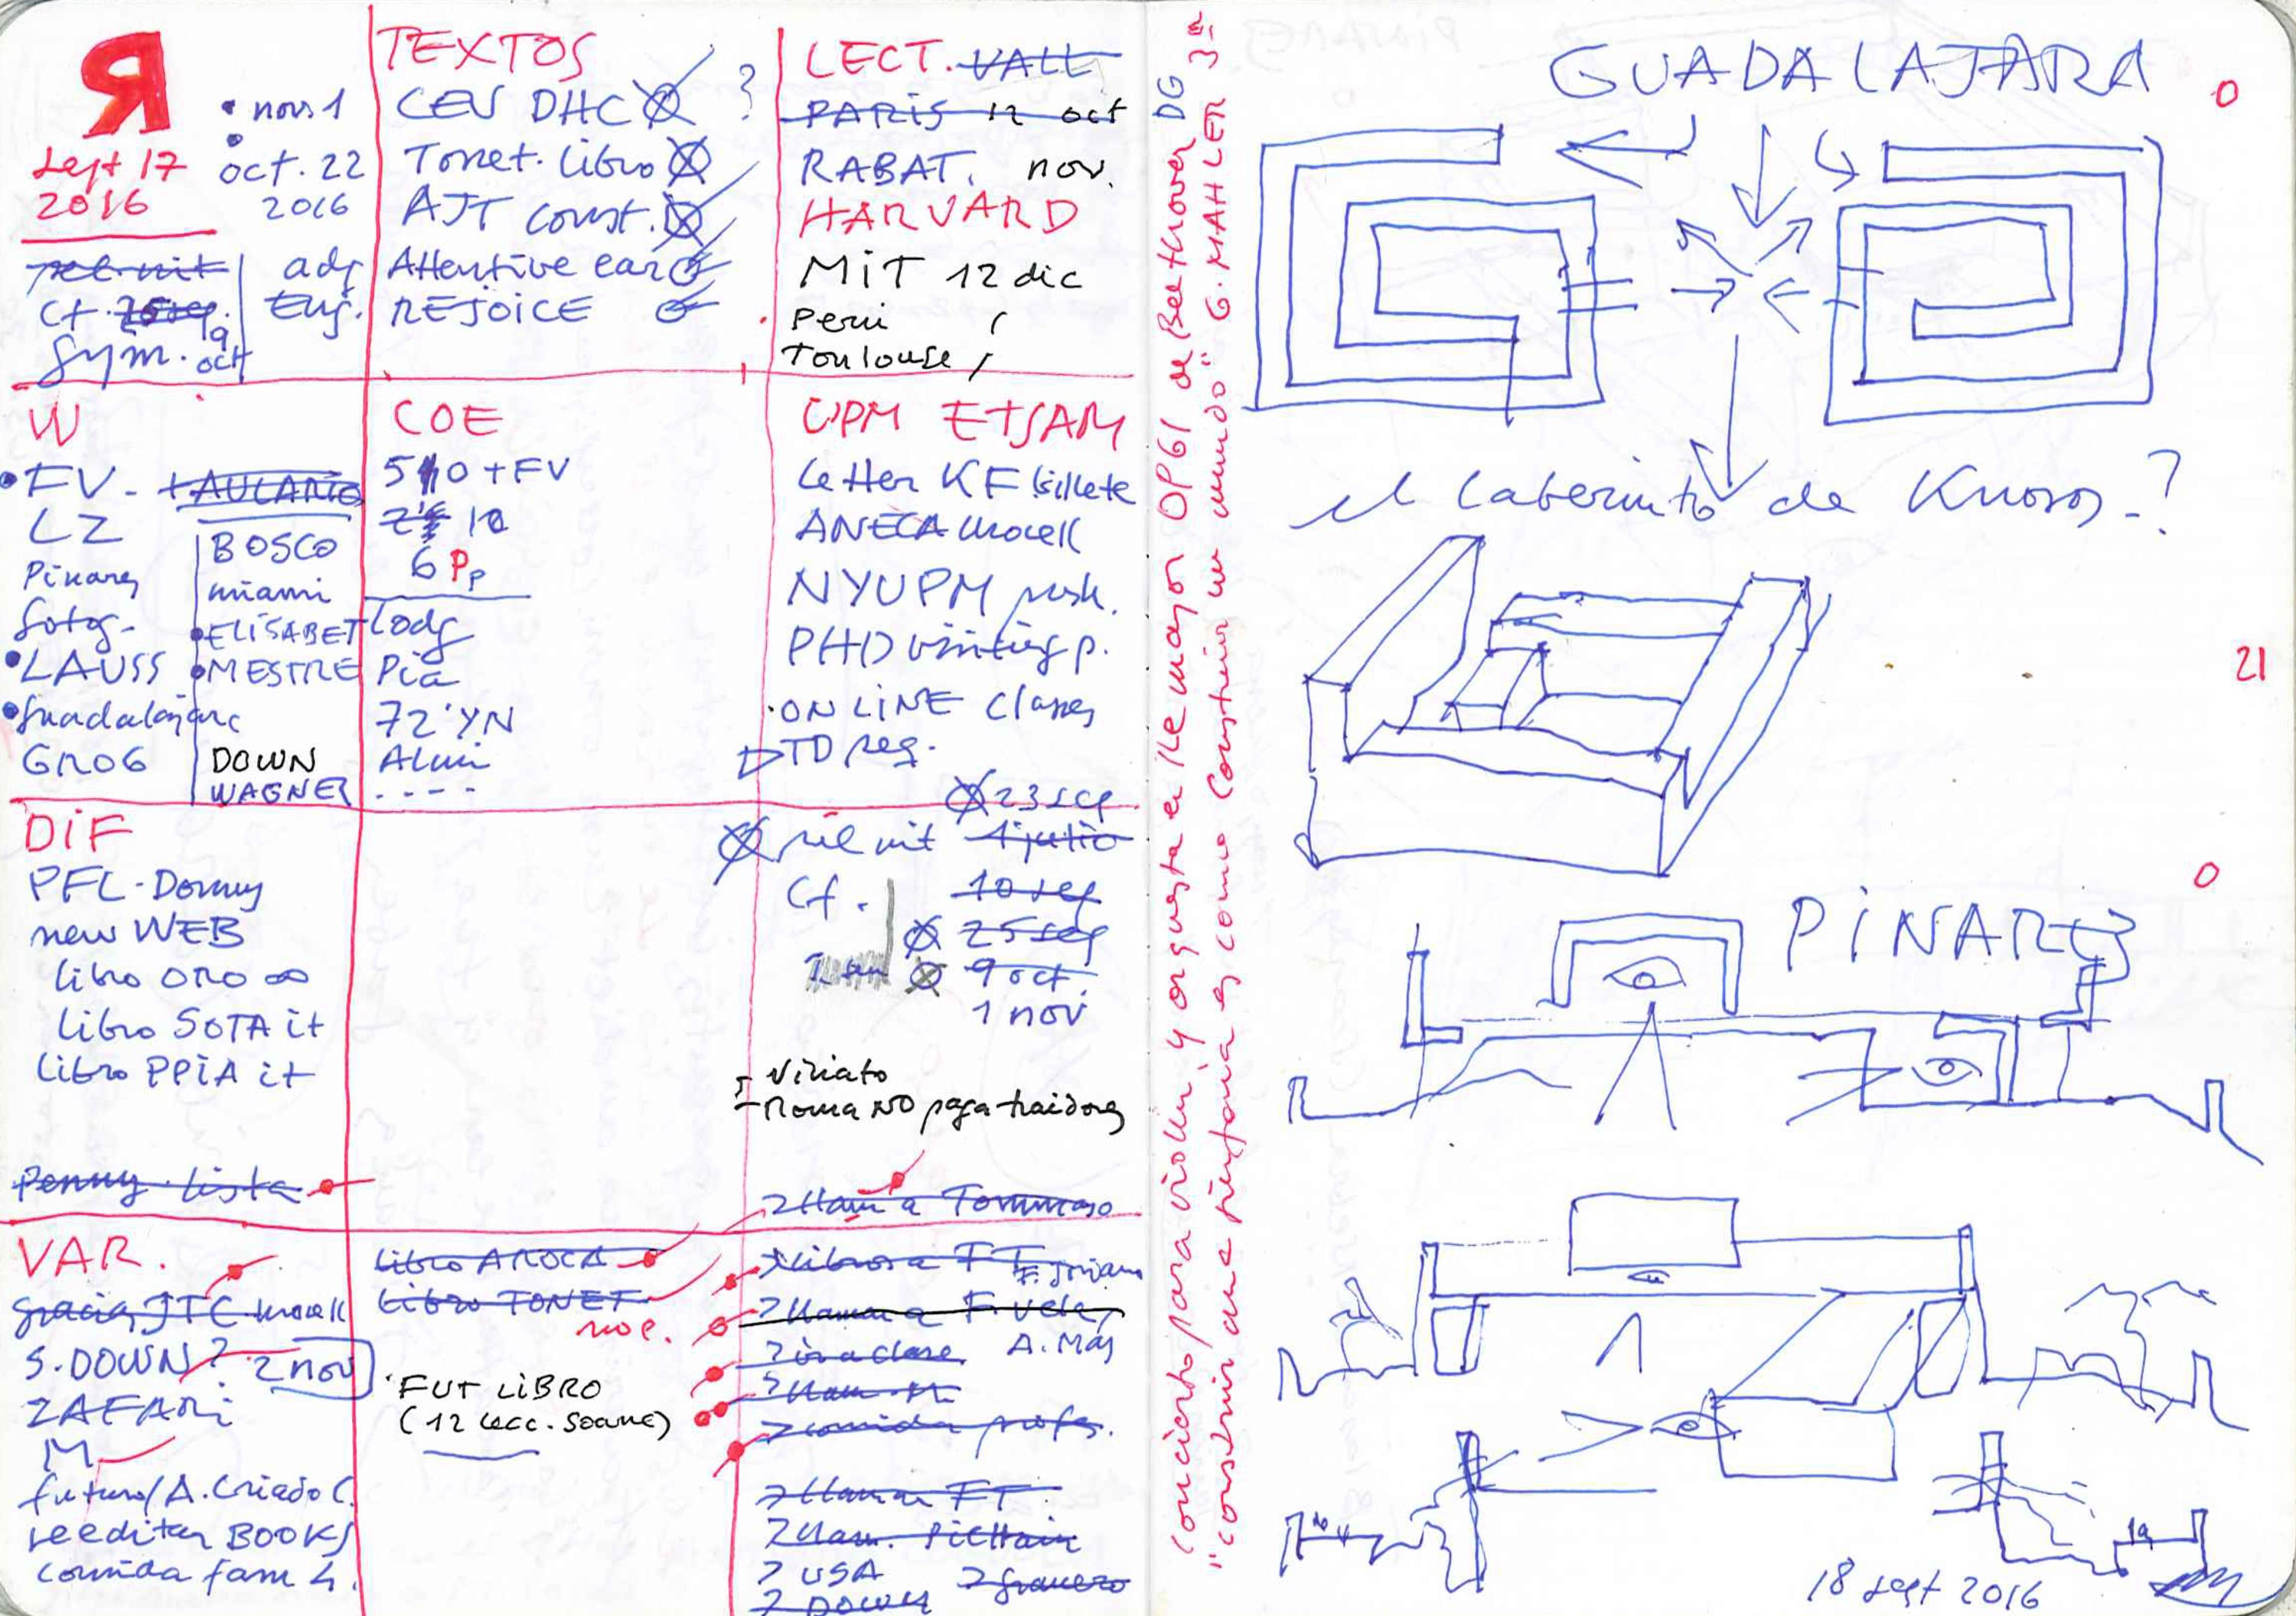 Я
• nov. 1
Sept 17 • oct. 22
2016 2016
rel. mit adj
Cf. 25 sep. Enj.
Sym. 19 oct
TEXTOS
CEU DHC ?
Tonet. libro
AJT const.
Attentive ear
REJOICE
LECT. VALL
PARIS 12 oct
RABAT. nov.
HARVARD
MiT 12 dic
Peru
Toulouse
W
• FV - + AULARIO
LZ
Pinares
fotog-
• LAUSS
• Guadalajara
GROG
BOSCO
miami
• ELISABET
• MESTRE
DOWN
WAGNER
COE
510 + FV
10
6 Pp
Todg
Pia
72'YN
Alum
- - - -
UPM ETSAM
Letter KF billete
ANECA Mocell
NYUPM
PHD visiting p.
• ON LINE classes
TD reg.
23 sep
DiF
PFL - Domy
new WEB
libro ORO ∞
libro SOTA it
libro PPIA it
Penny lista
rel mit 1 julio
Cf. 10 sep
25 sep
9 oct.
1 nov
Viriato
Roma NO paga traidores
? llam a Tommaso
VAR.
gracias JTC Mocell
S. DOWN? 2 nov
ZAFARi
M
futuro / A. Criado C.
reeditar BOOKS
comida fam 4.
libro AROCA
libro TONET
no e.
• FUT LiBRO
(12 lecc. Soane)
? libros a FT F. Soriano
? llamar a F. Vela
? ir a clase A. Mas
? comida profs.
? llamar FT
? llam. Pich
? USA
? DOWN
concierto para violín y orquesta en Re mayor OP61 de Beethoven DG
"construir una sinfonía es como construir un mundo" G. MAHLER 3ª
GUADALAJARA
0
el laberinto de Knosos-?
21
0
PINARES
18 sept 2016